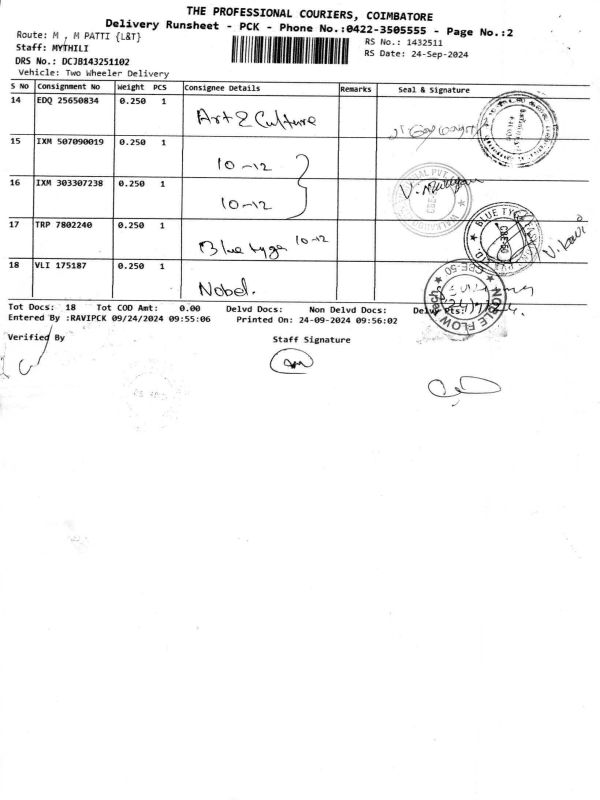 THE PROFESSIONAL COURIERS, COIMBATORE
Delivery Runsheet - PCK - Phone No.:0422-3505555 - Page No.:2
Route: M , M PATTI {L&T}
RS No.: 1432511
Staff: MYTHILI
RS Date: 24-Sep-2024
DRS No.: DCJB143251102
Vehicle: Two Wheeler Delivery
S No Consignment No Weight PCS Consignee Details Remarks Seal & Signature
14 EDQ 25650834 0.250 1
Art & Culture
15 IXM 507090019 0.250 1
10-12
16 IXM 303307238 0.250 1
10-12
V. Murugan
17 TRP 7802240 0.250 1
Blue tyga 10-12
BLUE TYGA
CBE-50
V. Ravi
18 VLI 175187 0.250 1
Nobel.
CBE-50
NOBLE FLOW
Tot Docs: 18 Tot COD Amt: 0.00 Delvd Docs: Non Delvd Docs: Delvy Pts:
Entered By :RAVIPCK 09/24/2024 09:55:06 Printed On: 24-09-2024 09:56:02
Verified By Staff Signature